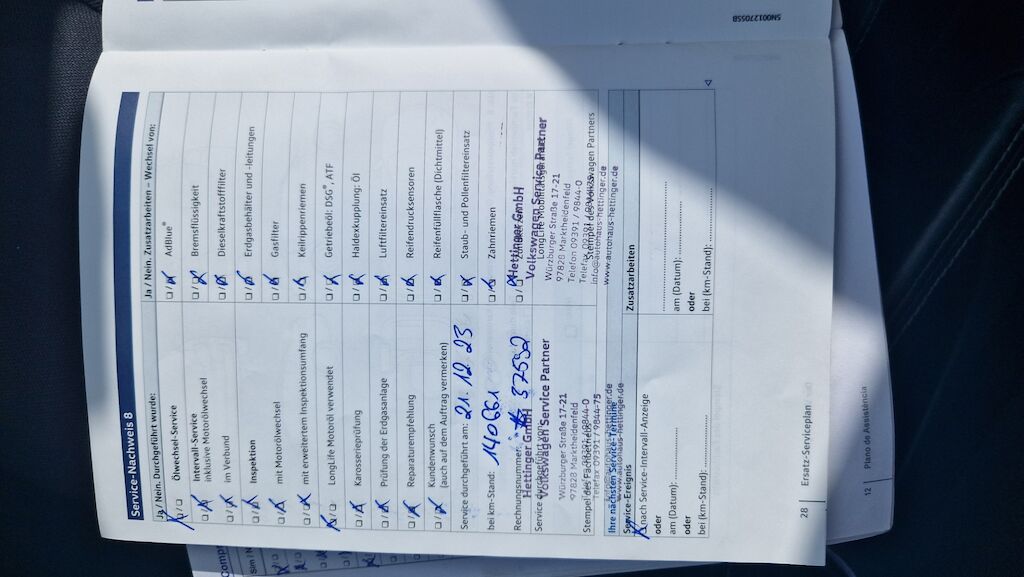 Service-Nachweis 8
Ja / Nein. Durchgeführt wurde:
Ölwechsel-Service
Intervall-Service
inklusive Motorölwechsel
im Verbund
Inspektion
mit Motorölwechsel
mit erweitertem Inspektionsumfang
LongLife Motoröl verwendet
Karosserieprüfung
Prüfung der Erdgasanlage
Reparaturempfehlung
Kundenwunsch
(auch auf dem Auftrag vermerken)
Service durchgeführt am: 21.12.23
bei km-Stand: 140661
Rechnungsnummer:
Hettinger GmbH
Service durchgeführt von:
Volkswagen Service Partner
Würzburger Straße 17-21
97828 Marktheidenfeld
Stempel des Fachbetriebs
Telefax 09391 / 9844-75
www.autohaus-hettinger.de
Ja / Nein. Zusatzarbeiten – Wechsel von:
AdBlue®
Bremsflüssigkeit
Dieselkraftstofffilter
Erdgasbehälter und -leitungen
Gasfilter
Keilrippenriemen
Getriebeöl: DSG®, ATF
Haldexkupplung: Öl
Luftfiltereinsatz
Reifendrucksensoren
Reifenfüllflasche (Dichtmittel)
Staub- und Pollenfiltereinsatz
Zahnriemen
Hettinger GmbH
Volkswagen Service Partner
LongLife Mobilitätsgarantie
Würzburger Straße 17-21
97828 Marktheidenfeld
Telefon 09391 / 9844-0
Stempel des Volkswagen Partners
info@autohaus-hettinger.de
www.autohaus-hettinger.de
Ihre nächsten Service-Termine
Service-Ereignis
nach Service-Intervall-Anzeige
oder
am (Datum):
oder
bei (km-Stand):
Zusatzarbeiten
am (Datum):
oder
bei (km-Stand):
28 Ersatz-Serviceplan
12 Plano de Assistência
5N0012705SB